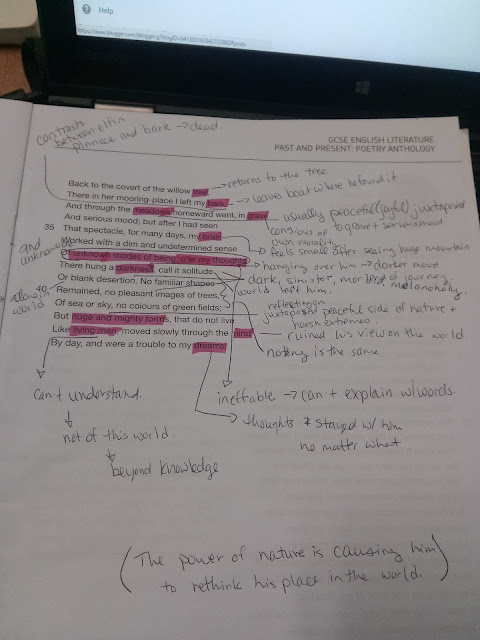 Help
contrasts
between elfin
pinnace and bark → dead.
GCSE ENGLISH LITERATURE
PAST AND PRESENT: POETRY ANTHOLOGY
Back to the covert of the willow tree; → returns to the tree
There in her mooring-place I left my bark, → leaves boat where he found it
And through the meadows homeward went, in grave → usually peaceful (joyful) juxtaposed to grave + seriousmood
And serious mood; but after I had seen
conscious of
own mortality
35 That spectacle, for many days, my brain → feels small after seeing huge mountain
Worked with a dim and undetermined sense
and unknown
Of unknown modes of being; o'er my thoughts → hanging over him → darker mood
There hung a darkness, call it solitude → dark, sinister, moral end of journey
world left him. melancholy
Or blank desertion. No familiar shapes
alone in
world
reflecting on
40 Remained, no pleasant images of trees, juxtaposed peaceful side of nature +
harsh extremes
Of sea or sky, no colours of green fields;
But huge and mighty forms, that do not live
Like living men, moved slowly through the mind → ruined his view on the world
By day, and were a trouble to my dreams.
nothing is the same
can't understand.
not of this world.
beyond knowledge
ineffable → can't explain w/ words.
thoughts stayed w/ him
no matter what.
(The power of nature is causing him
to rethink his place in the world.)